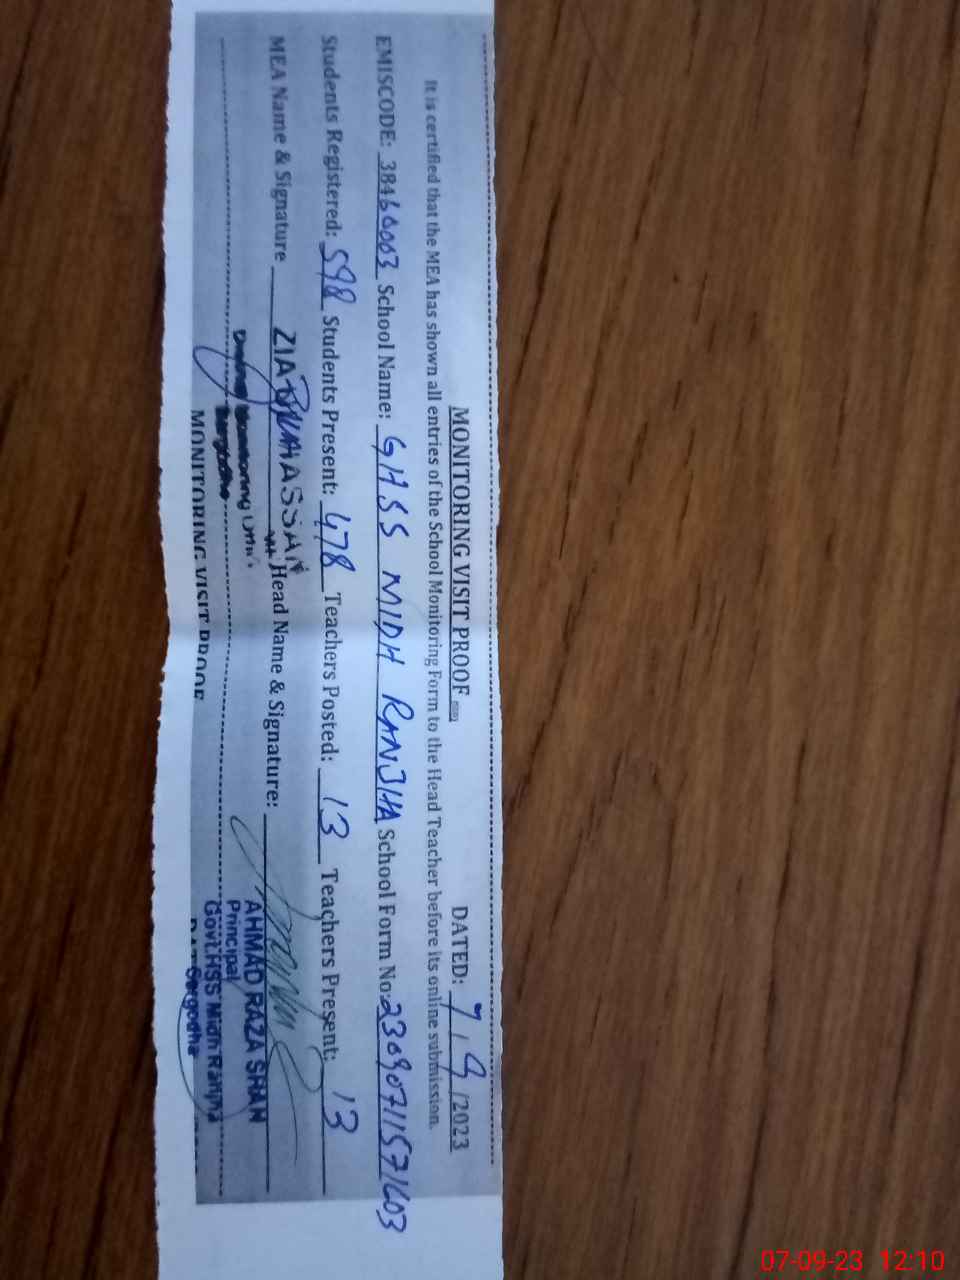 MONITORING VISIT PROOF DATED: 7/9/2023
It is certified that the MEA has shown all entries of the School Monitoring Form to the Head Teacher before its online submission.
EMISCODE: 38460003 School Name: GHSS MIDH RANJHA School Form No: 23090711571603
Students Registered: 598 Students Present: 478 Teachers Posted: 13 Teachers Present: 13
MEA Name & Signature ZIA UL HASSAN Head Name & Signature:
AHMAD RAZA SHAH
Monitoring Principal
Sargodha Govt.HSS Midh Ranjha
Sargodha
MONITORING VISIT PROOF
07-09-23 12:10